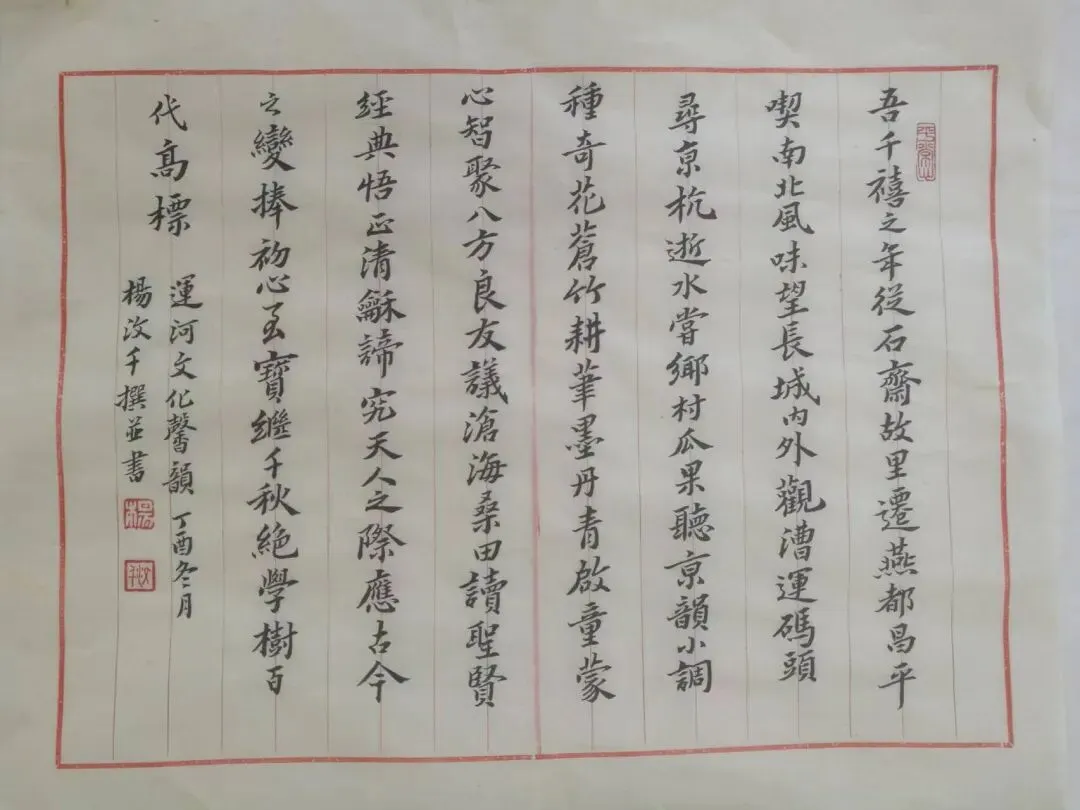 吾千禧之年從石齋故里遷燕都昌平
喫南北風味望長城内外觀漕運碼頭
尋京杭逝水嘗鄉村瓜果聽京韻小調
種奇花蒼竹耕筆墨丹青啟童蒙
心智聚八方良友議滄海桑田讀聖賢
經典悟正清龢諦究天人之際應古今
之變捧初心至寶繼千秋絶學樹百
代高標
運河文化馨韻 丁酉冬月
楊汶千撰並書